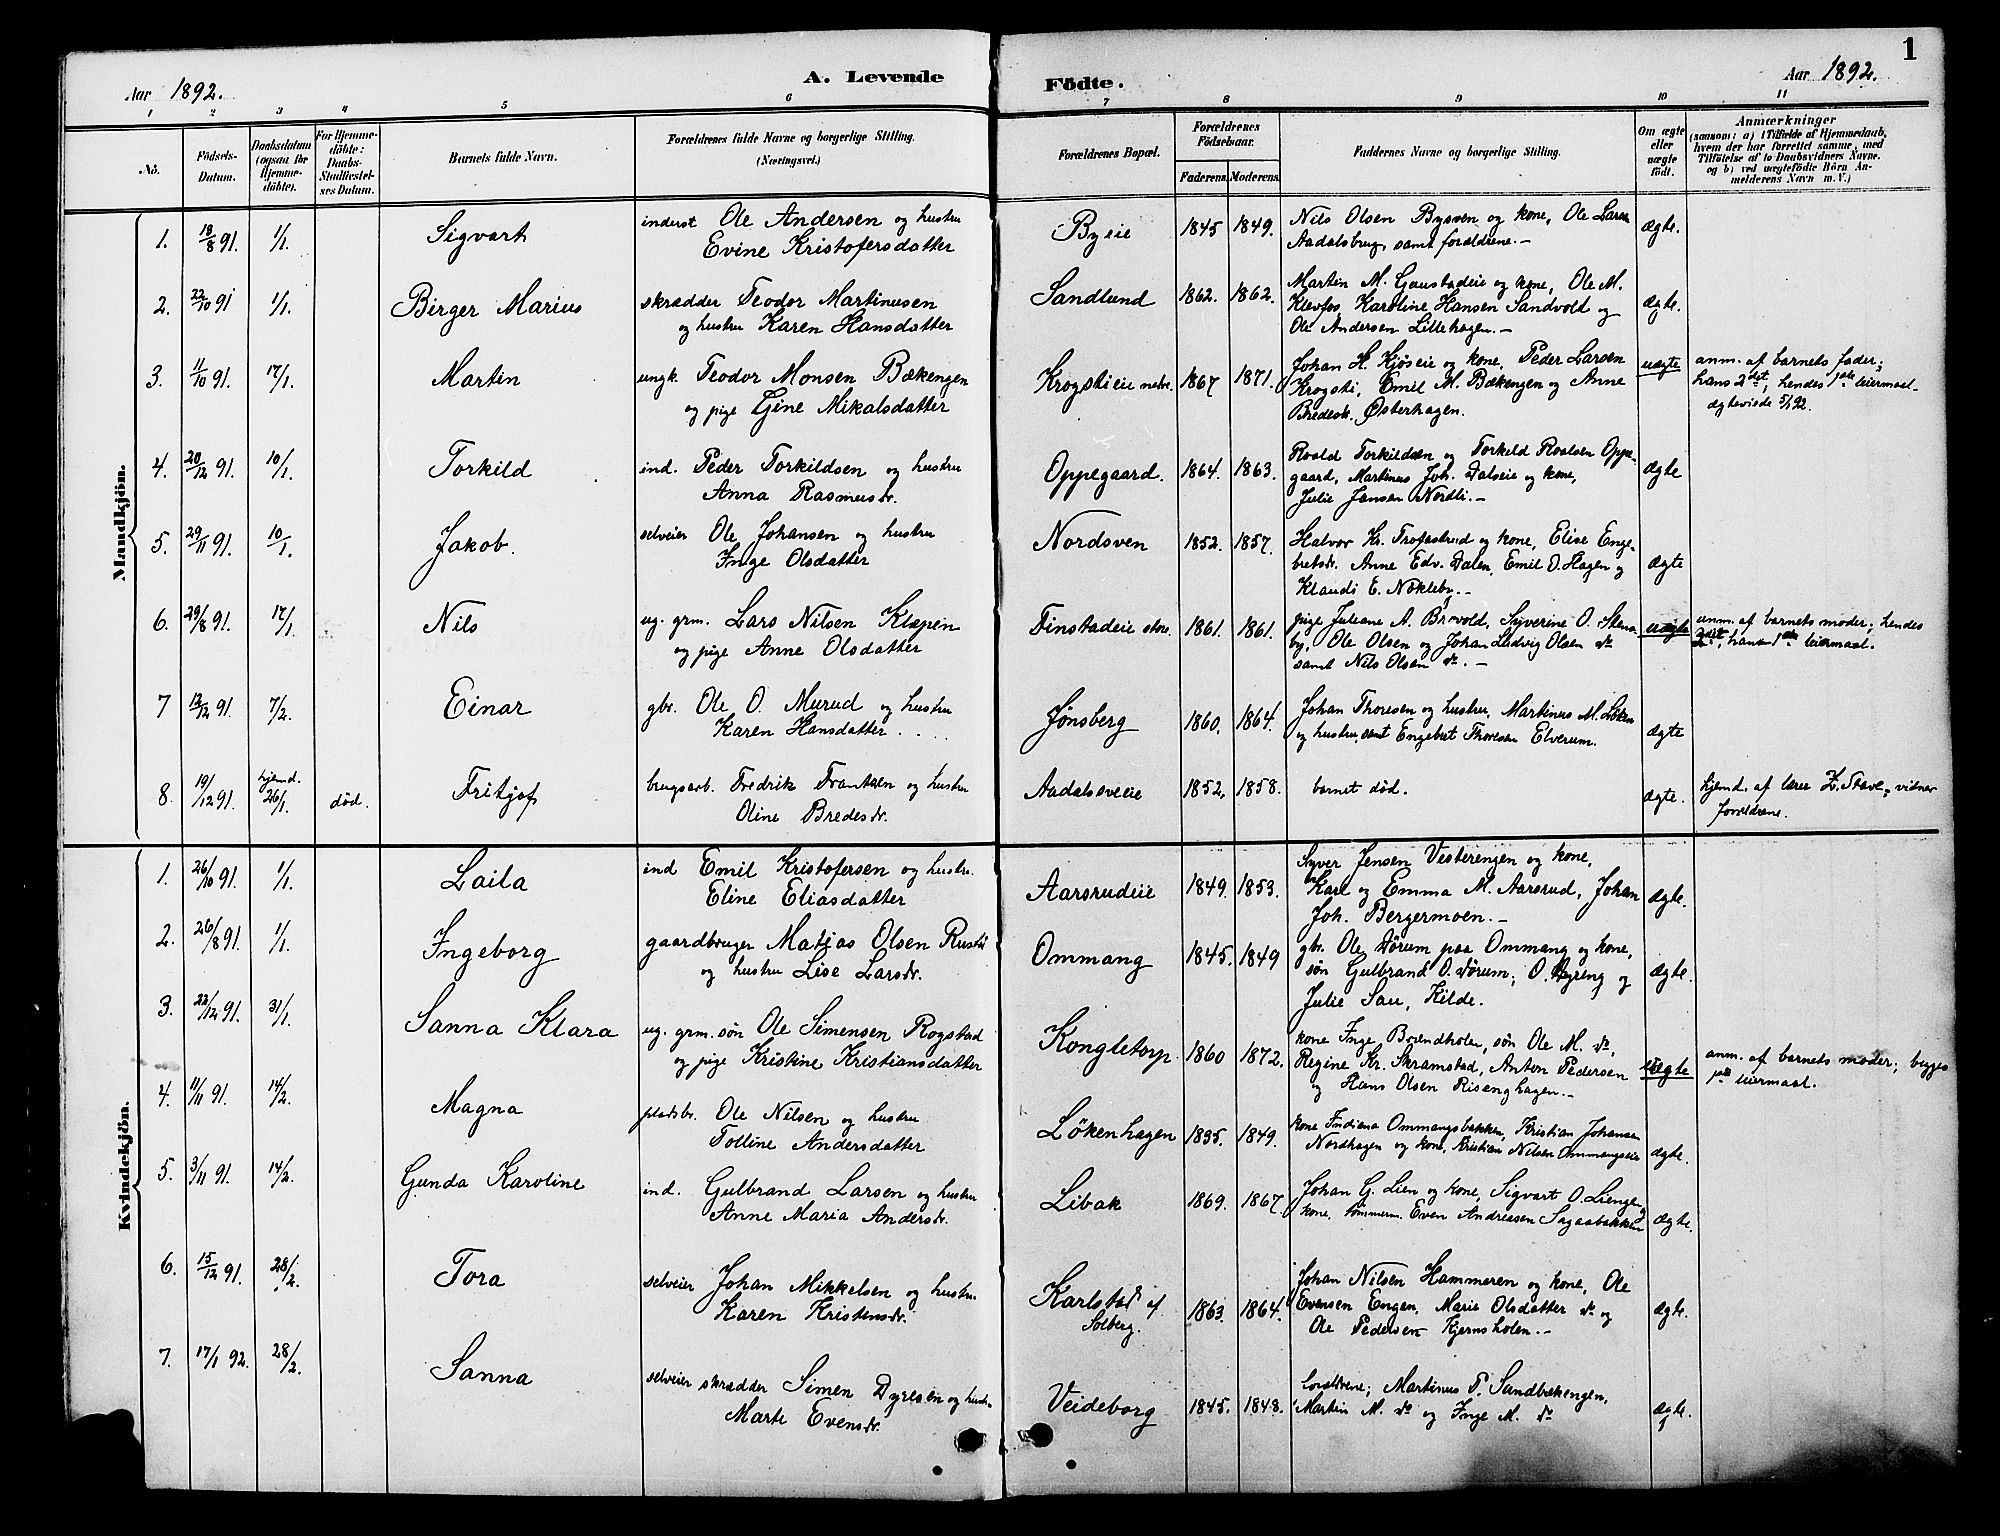 1
Aar 1892.
A. Levende Födte.
Aar 1892.
1 2 3 4 5 6 7 8 9 10 11
No.
Födsels-Datum.
Daabsdatum (ogsaa for Hjemmedöbte).
For Hjemmedöbte: Daabs-Stadfæstelses Datum.
Barnets fulde Navn.
Forældrenes fulde Navne og borgerlige Stilling.
(Næringsvei.)
Forældrenes Bopæl.
Forældrenes Födselsaar.
Faderens. Moderens.
Faddernes Navne og borgerlige Stilling.
Om ægte eller uægte födt.
Anmærkninger
(saasom: a) i Tilfælde af Hjemmedaab, hvem der har forrettet samme, med Tilföielse af to Daabsvidners Navne, og b) ved uægtefödte Börn Anmelderens Navn m. V.)
Mandkjön.
1. 18/8 91. 1/1. Sigvart inderst Ole Andersen og hustru Byeie 1845 1849. Nils Olsen Bysven og kone, Ole Larsen ægte.
Evine Kristofersdatter Aadalsbrug, samt forældrene.-
2. 22/10 91 1/1. Birger Marius skrædder Teodor Martinusen Sandlund 1862. 1862. Martin M. Gaustadeie og kone, Ole M. ægte.
og hustru Karen Hansdatter Klevfos, Karoline Hansen Sandvold og
Ole Andersen Lillehagen.-
3. 11/10 91. 17/1. Martin ungk. Teodor Monsen Bækengen Krogstieie nedre. 1867 1871. Johan H. Kjøseie og kone, Peder Larsen uægte anm. af barnets fader;
og pige Gine Mikalsdatter Krogsti, Emil M. Bækengen og Anne hans 2det, hendes 1ste leiermaal.
Bredesdr. Østerhagen. ægteviede 5/1 92.
4. 20/12 91. 10/1. Torkild ind. Peder Torkildsen og hustru Oppegaard. 1864. 1863. Roald Torkildsen og Torkild Roalsen Oppe- ægte
Anna Rasmusdr. gaard, Martinus Joh. Dalseie og kone,
Julie Jansen Nordli.-
5. 29/11 91. 10/1. Jakob. selveier Ole Johansen og hustru Nordsven 1852. 1857. Halvor Kr. Trofastrud og kone, Elise Enge- ægte
Inge Olsdatter bretsdr. Anne Edv. Dalen, Emil O. Hagen og
Klaudi E. Nökleby.-
6. 29/8 91. 17/1. Nils ug. grm. Lars Nilsen Klæpen Finstadeie store. 1861. 1861. pige Juliane A. Brovold, Syverine O. Stena- uægte anm. af barnets moder; hendes
og pige Anne Olsdatter by, Ole Olsen og Johan Ludvig Olsen do 2det, hans 1ste leiermaal.
samt Nils Olsen do.-
7 13/12 91. 7/2. Einar gbr. Ole O. Murud og hustru Jønsberg 1860. 1864. Johan Thoresen og hustru, Martinus M. Løken ægte
Karen Hansdatter.... og hustru, samt Engebret Thoresen Elverum.
8. 19/12 91. hjemd. 26/1. död. Fritjof brugsarb. Fredrik Frantsen og hustru Aadalsveie 1852, 1858. barnet död. ægte. hjemd. af lærer Z. Stave, vidner
Oline Bredesdr. forældrene.
Kvindekjön.
1. 26/10 91. 1/1. Laila ind Emil Kristofersen og hustr. Aarsrudeie 1849. 1853. Syver Jensen Vesterengen og kone, ægte.
Eline Eliasdatter Karl og Emma M. Aarsrud, Johan
Joh. Bergermoen.-
2. 26/8 91. 1/1. Ingeborg gaardbruger Matias Olsen Rustad Ommang 1845. 1849 gbr. Ole Dørum paa Ommang og kone, ægte.
og hustru Lise Larsdr. søn Gulbrand O. Dørum; O. Myreng og
Julie Sau, Kilde.
3. 22/12 91. 31/1. Sanna Klara ug. grm. søn Ole Simensen Rogstad Kongletorp. 1860 1872. kone Inge Brendholen, søn Ole M. do, uægte anm. af barnets moder; begges
og pige Kristine Kristiansdatter Regine Kr. Skramstad, Anton Pedersen 1ste leiermaal.
og Hans Olsen Risenghagen.-
4. 11/11 91. 14/2. Magna pladsbr. Ole Nilsen og hustru Lökenhagen 1835. 1849. kone Indiana Ommangsbakken, Kristian Johansen ægte.
Tolline Andersdatter Nordhagen og kone, Kristian Nilsen Ommangseie
5. 3/11 91. 14/2. Gunda Karoline ind. Gulbrand Larsen og hustru Libak 1869. 1867. Johan G. Lien og kone, Sigvart O. Lienge og ægte.
Anne Maria Andersdr. kone, tømmerm. Even Andreasen Sagaabakken
6. 15/12 91. 28/2. Tora selveier Johan Mikkelsen og hustru Karlstad af Solberg. 1863. 1864. Johan Nilsen Hammeren og kone, Ole ægte.
Karen Kristensdr. Evensen Engen, Marie Olsdatter do og
Ole Pedersen Kjernsholen.-
7. 17/1 92. 28/2. Sanna selveier skrædder Simen Dyresen og hustru Veideborg 1845. 1848. forældrene; Martinus P. Sandbækengen, ægte.
Marte Evensdr. Martin M. do og Inge M. do